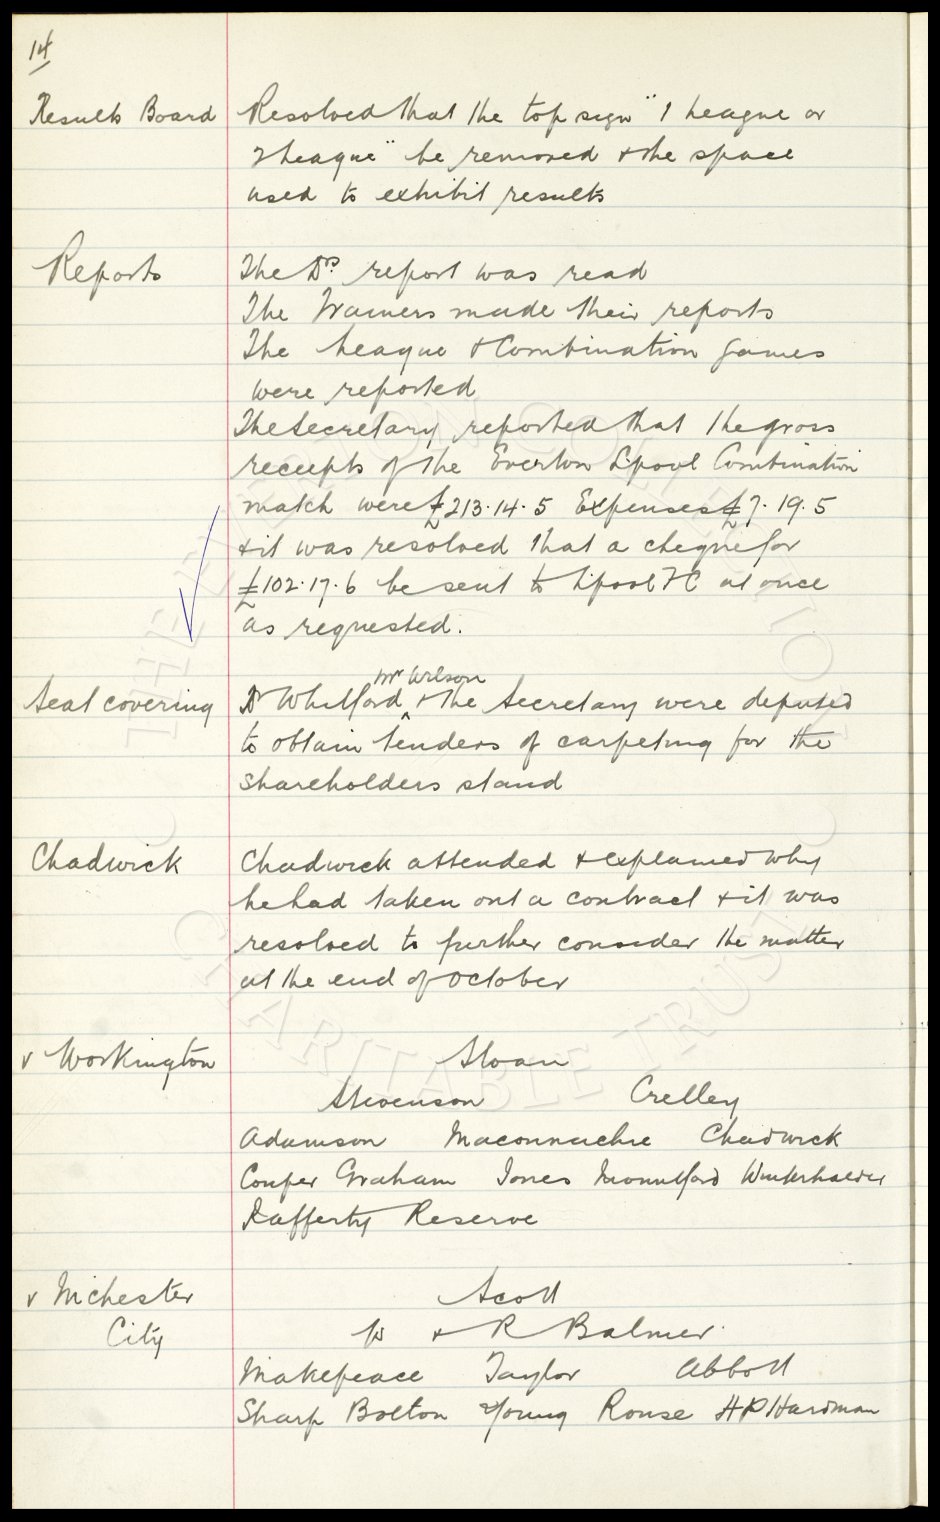 14
Results Board Resolved that the top sign "1 League or
2 League" be removed & the space
used to exhibit results
Reports The Drs report was read
The Trainers made their reports
The League & Combination Games
were reported
The Secretary reported that the gross
receipts of the Everton Lpool Combination
match were £213.14.5 Expenses £7.19.5
& it was resolved that a cheque for
£102.17.6 be sent to Lpool FC at once
as requested.
Mr Wilson
Seat covering Dr Whitford & the Secretary were deputed
to obtain tenders of carpeting for the
shareholders stand
Chadwick Chadwick attended & explained why
he had taken out a contract & it was
resolved to further consider the matter
at the end of October
v Workington Sloan
Stevenson Crelley
Adamson Maconnachie Chadwick
Couper Graham Jones Mountford Winterhalder
Rafferty Reserve
v Mchester Scott
City W & R Balmer
Makepeace Taylor Abbott
Sharp Bolton Young Rouse HP Hardman
THE EVERTON COLLECTION
CHARITABLE TRUST